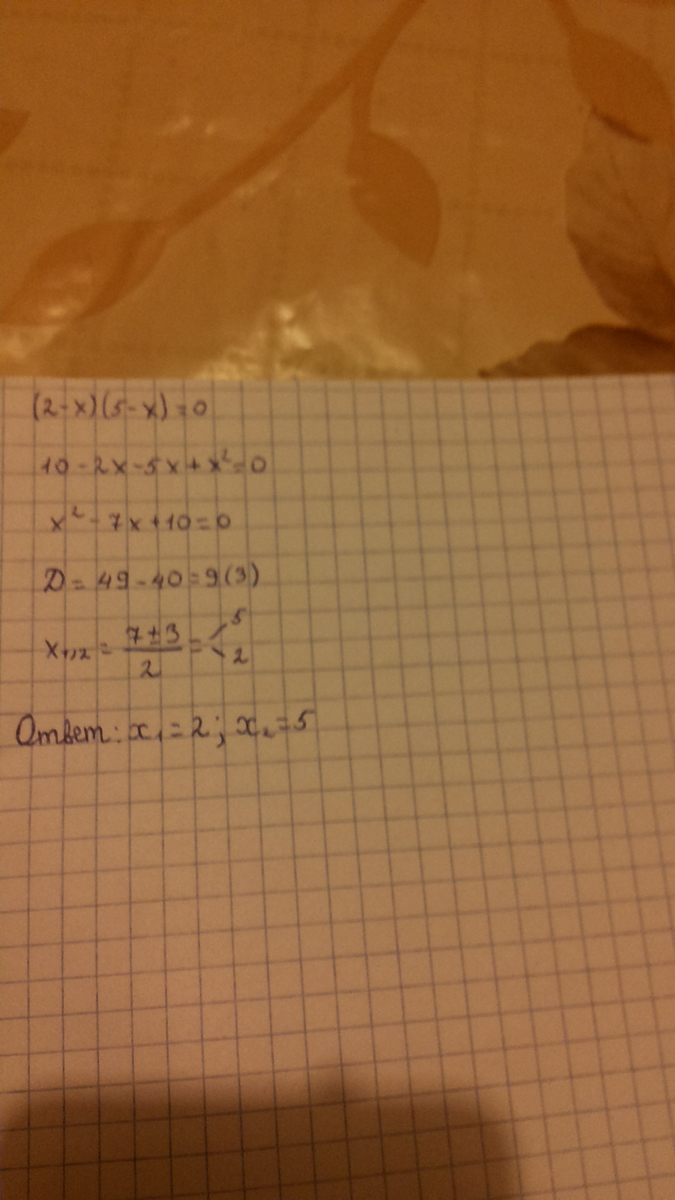 (2-x)(5-x)=0
10-2x-5x+x²=0
x²-7x+10=0
D=49-40=9(3)
x₁,₂=(7±3)/2=<5 2
Ответ: x₁=2; x₂=5